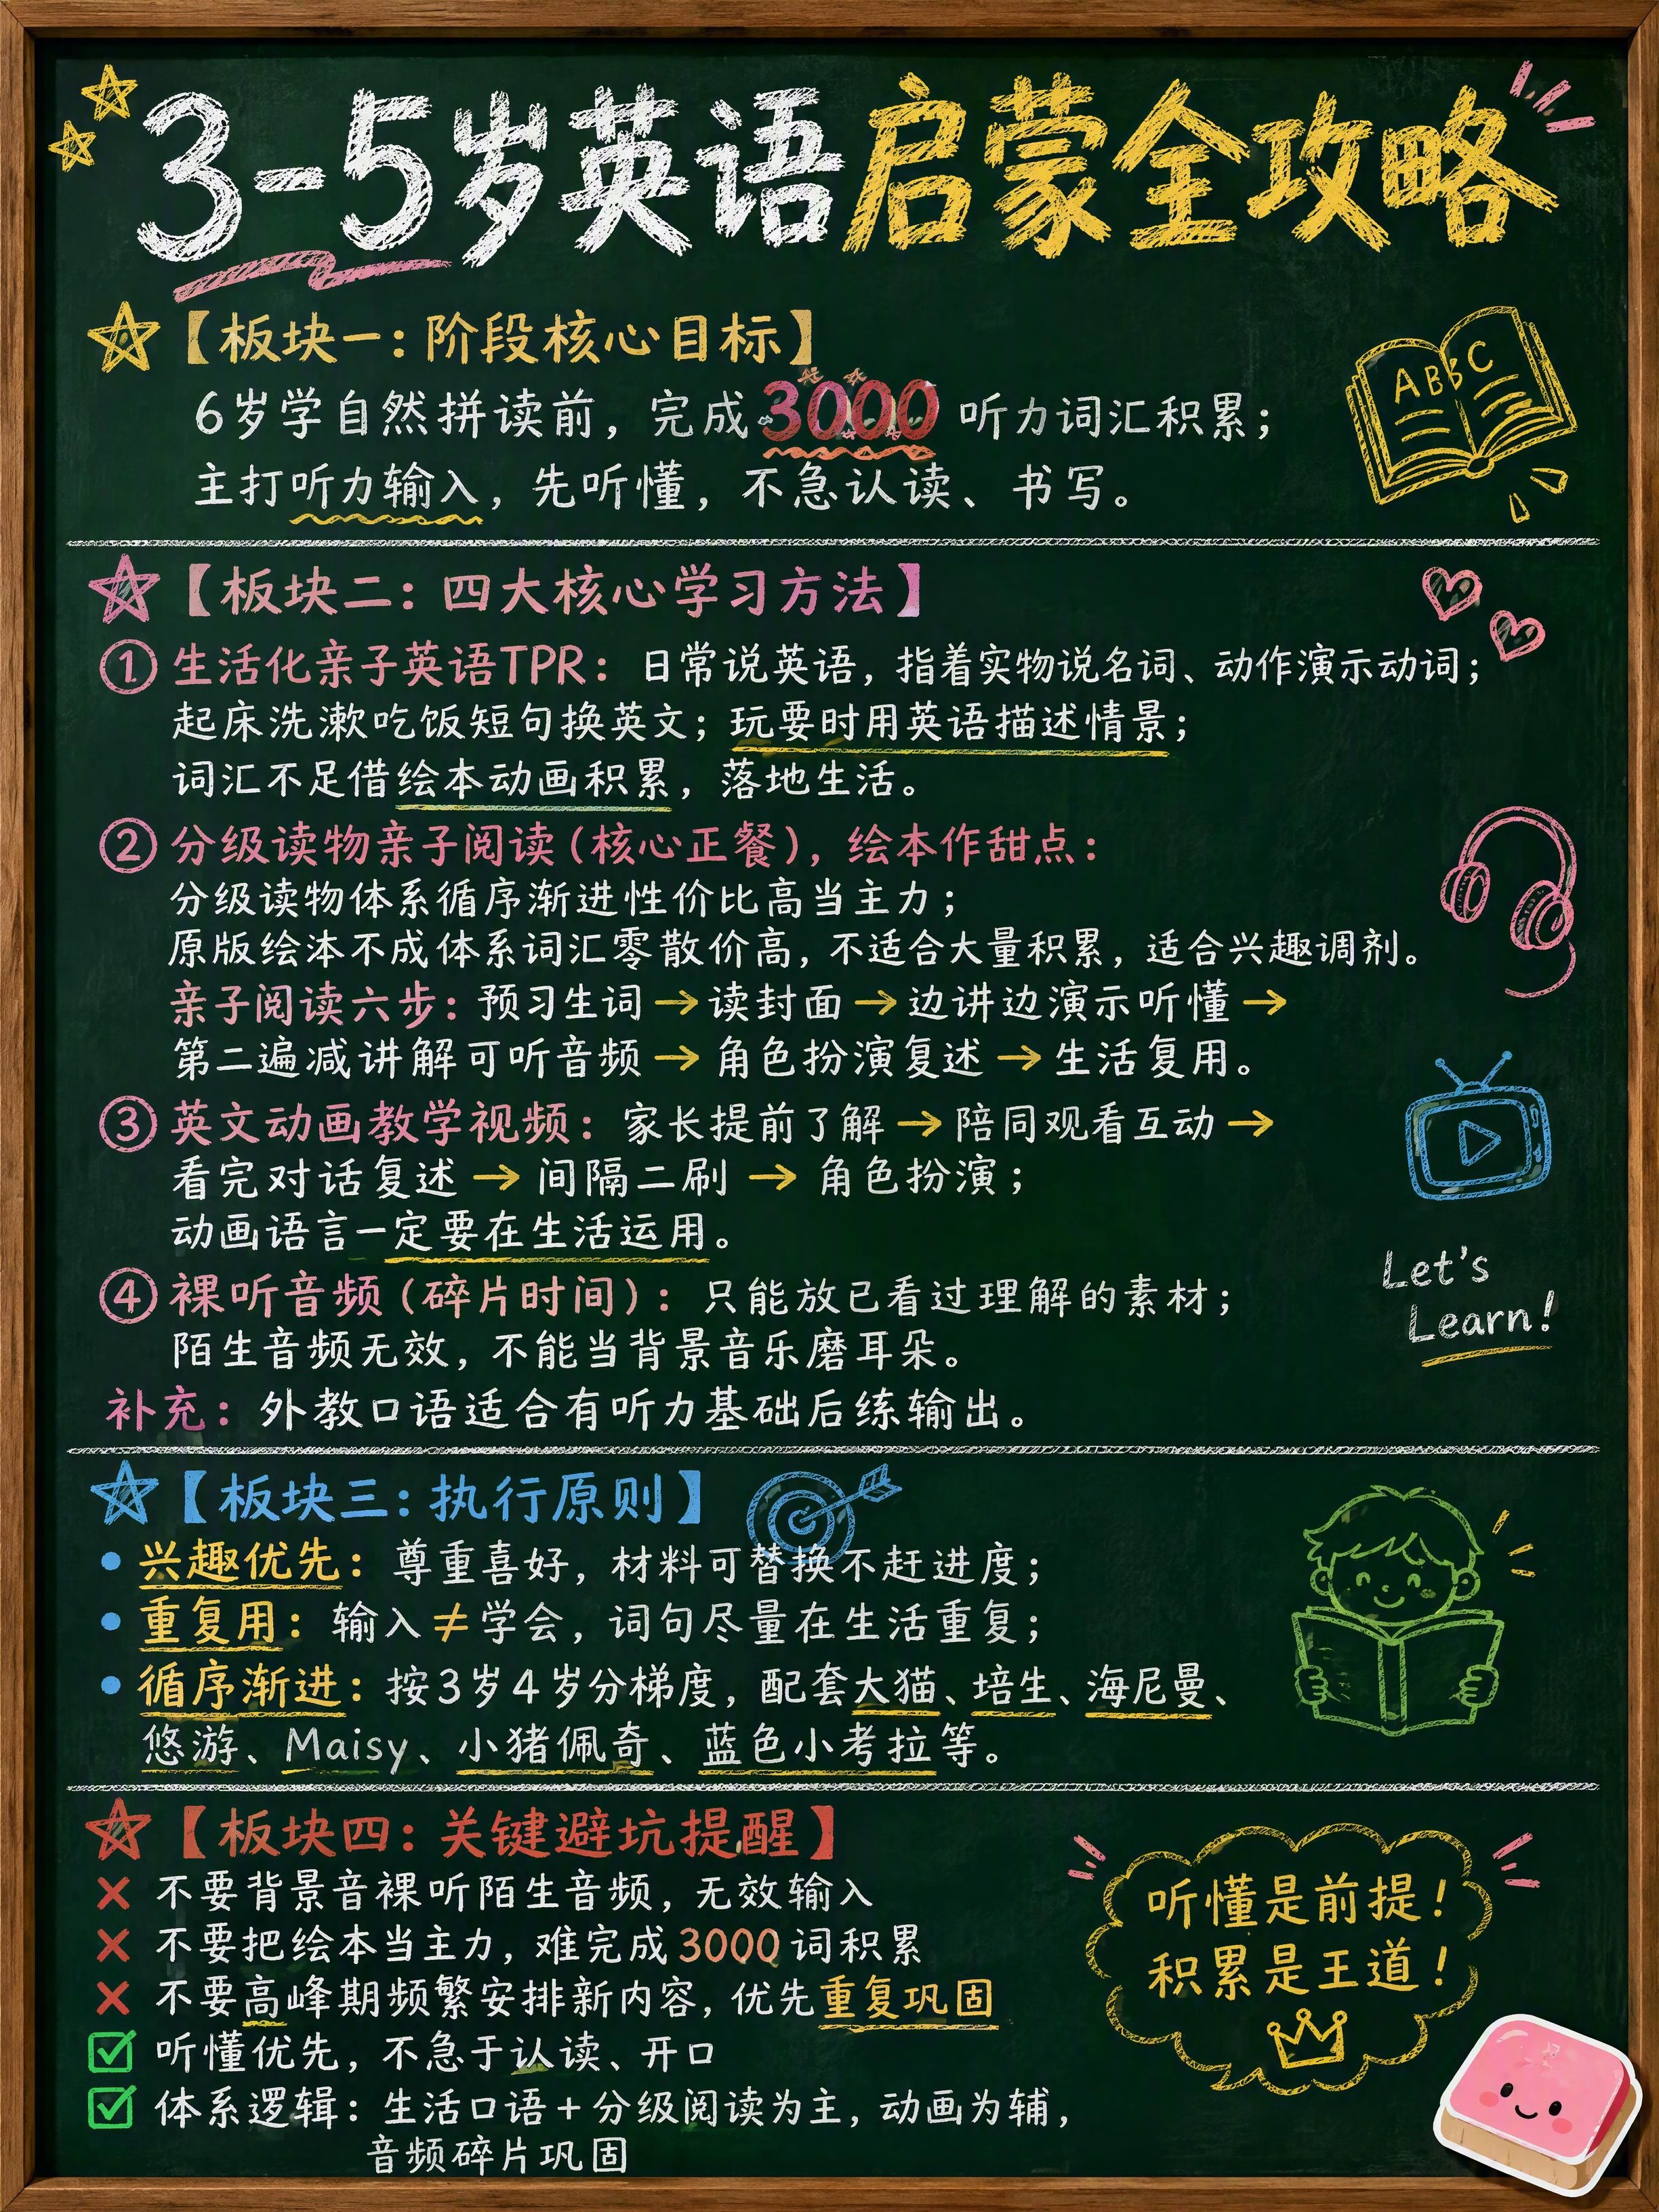 3-5岁英语启蒙全攻略
【板块一：阶段核心目标】
ABC
6岁学自然拼读前，完成3000听力词汇积累；
主打听力输入，先听懂，不急认读、书写。
【板块二：四大核心学习方法】
① 生活化亲子英语TPR：日常说英语，指着实物说名词、动作演示动词；
起床洗漱吃饭短句换英文；玩耍时用英语描述情景；
词汇不足借绘本动画积累，落地生活。
② 分级读物亲子阅读（核心正餐），绘本作甜点：
分级读物体系循序渐进性价比高当主力；
原版绘本不成体系词汇零散价高，不适合大量积累，适合兴趣调剂。
亲子阅读六步：预习生词→读封面→边讲边演示听懂→
第二遍减讲解可听音频→角色扮演复述→生活复用。
③ 英文动画教学视频：家长提前了解→陪同观看互动→
看完对话复述→间隔二刷→角色扮演；
动画语言一定要在生活运用。
④ 裸听音频（碎片时间）：只能放已看过理解的素材；
陌生音频无效，不能当背景音乐磨耳朵。
Let's
Learn!
补充：外教口语适合有听力基础后练输出。
【板块三：执行原则】
• 兴趣优先：尊重喜好，材料可替换不赶进度；
• 重复用：输入≠学会，词句尽量在生活重复；
• 循序渐进：按3岁4岁分梯度，配套大猫、培生、海尼曼、
悠游、Maisy、小猪佩奇、蓝色小考拉等。
【板块四：关键避坑提醒】
❌ 不要背景音裸听陌生音频，无效输入
❌ 不要把绘本当主力，难完成3000词积累
❌ 不要高峰期频繁安排新内容，优先重复巩固
✅ 听懂优先，不急于认读、开口
✅ 体系逻辑：生活口语+分级阅读为主，动画为辅，
音频碎片巩固
听懂是前提！
积累是王道！